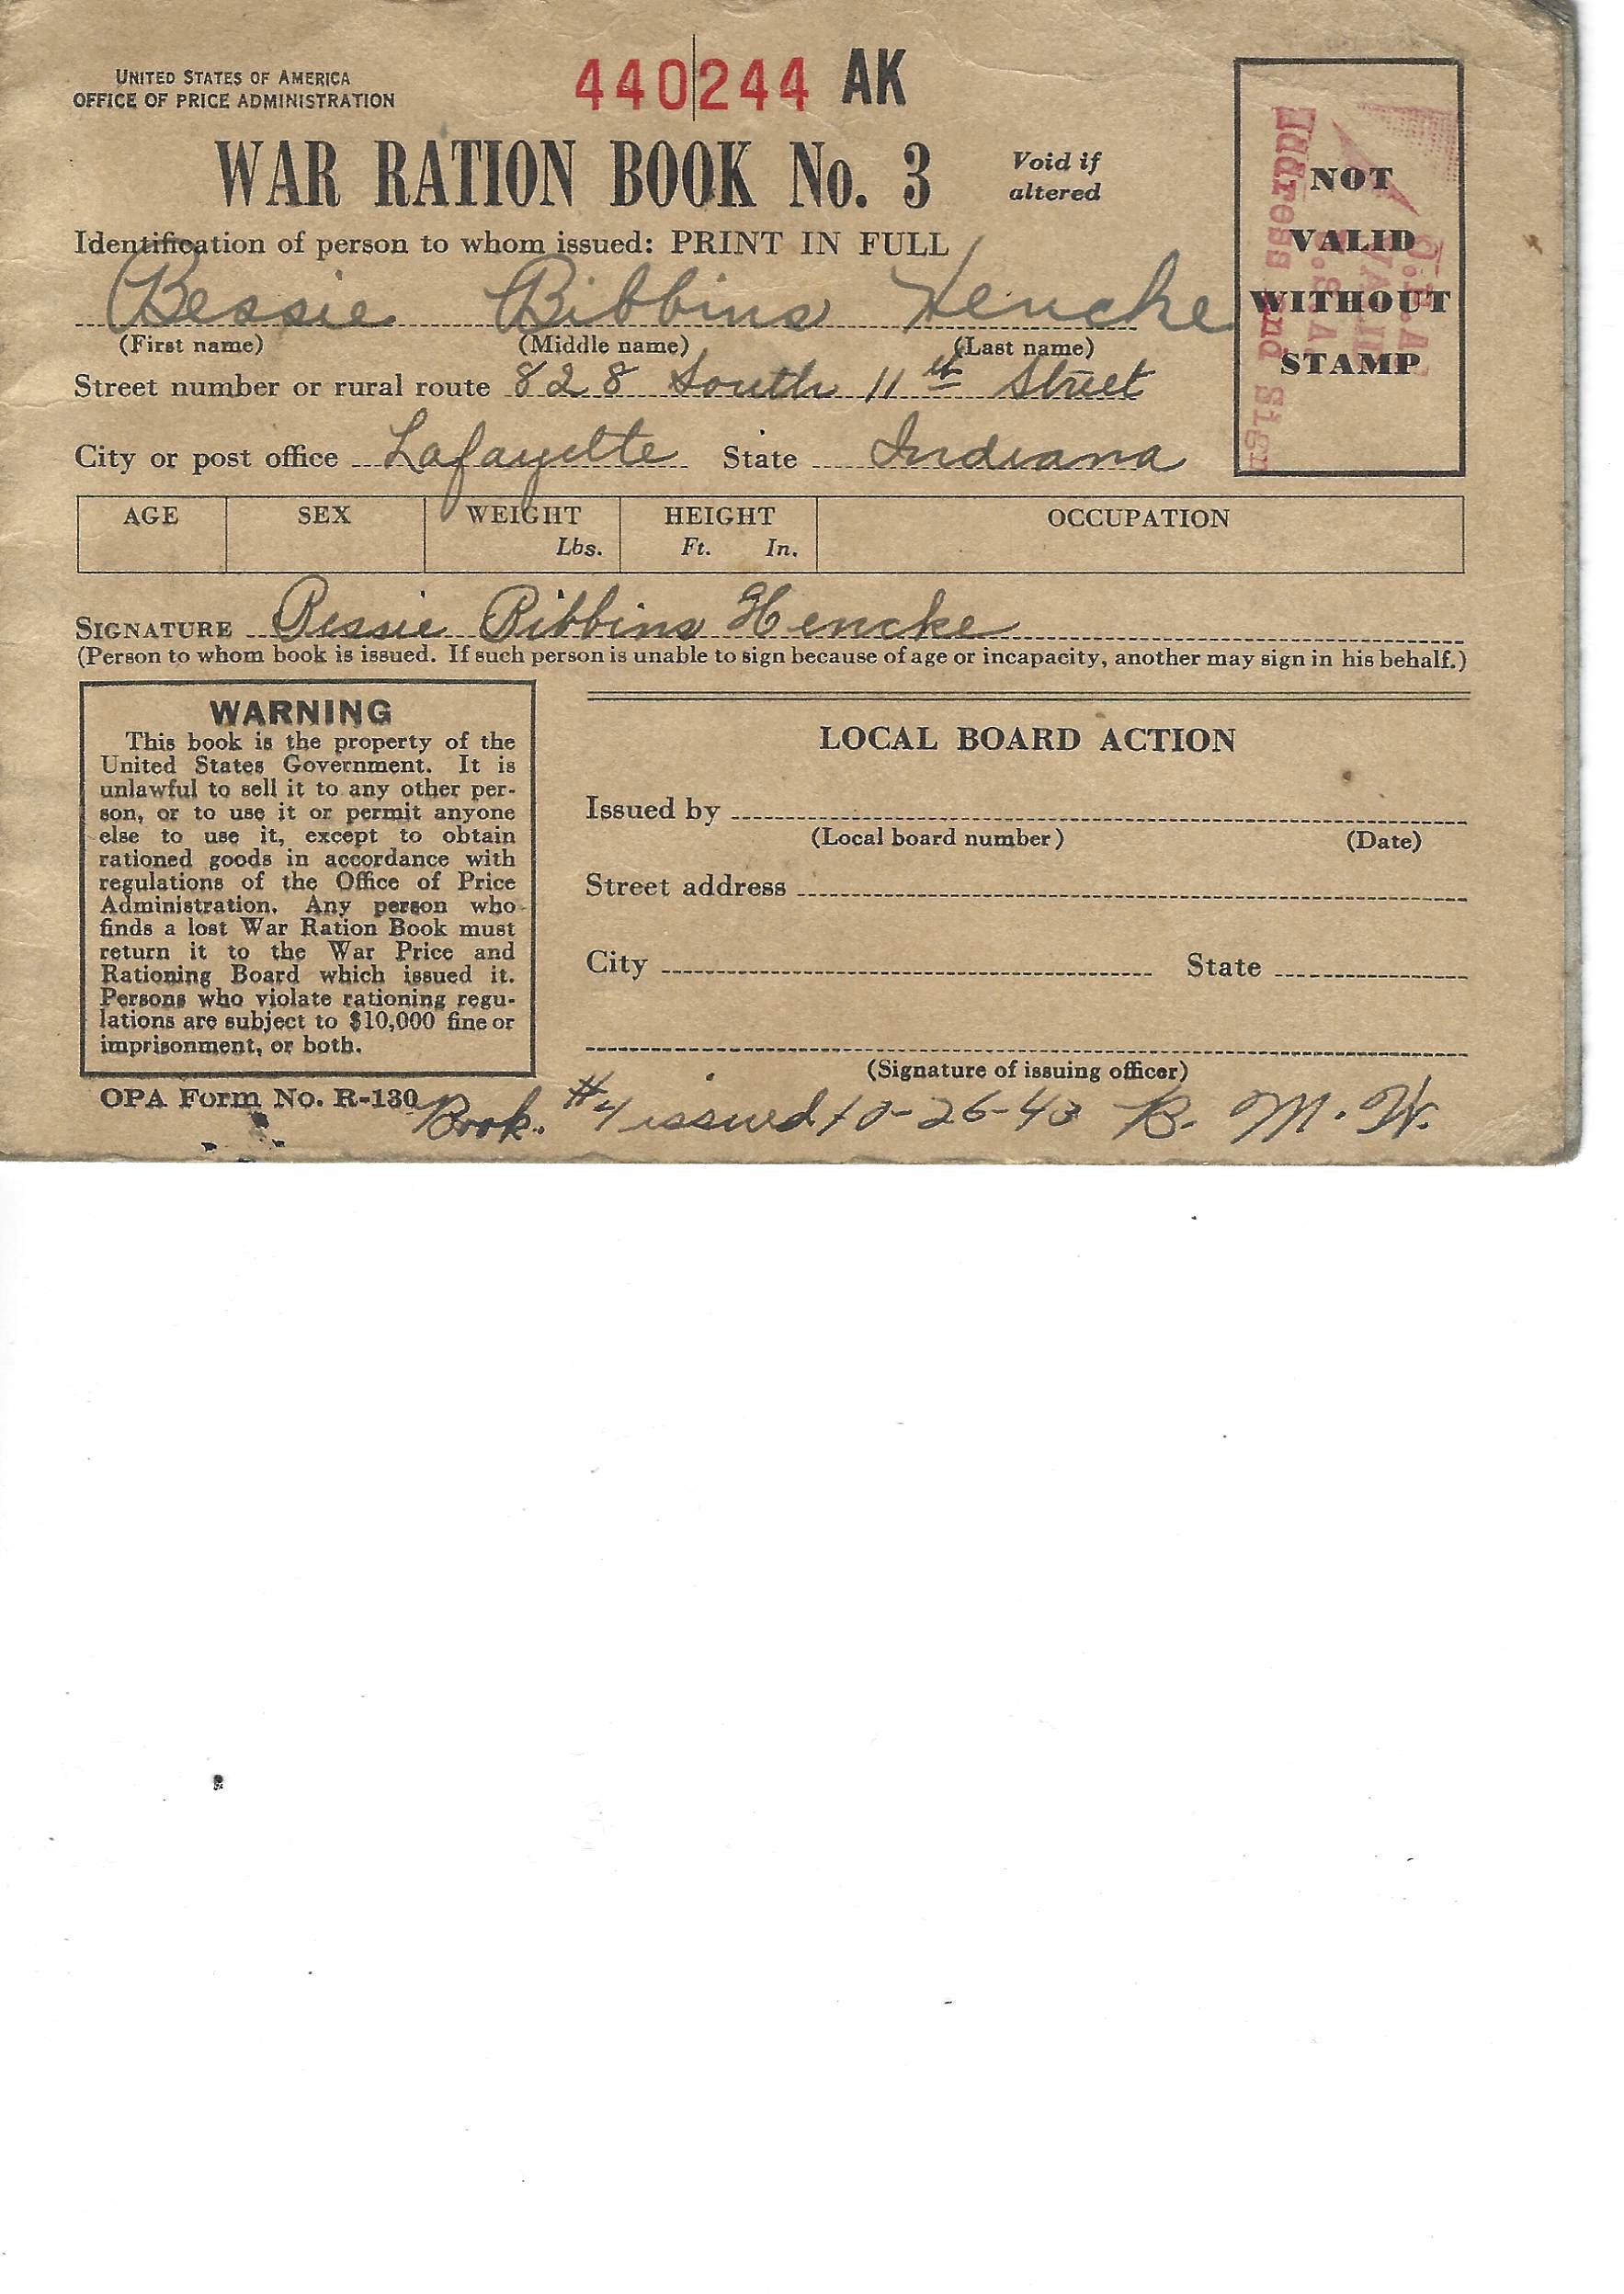 UNITED STATES OF AMERICA
OFFICE OF PRICE ADMINISTRATION
440244 AK
WAR RATION BOOK No. 3
Void if
altered
Identification of person to whom issued: PRINT IN FULL
Bessie Bibbins Hencke
(First name) (Middle name) (Last name)
Street number or rural route 828 South 11th Street
City or post office Lafayette State Indiana
NOT
VALID
WITHOUT
STAMP
Address and Sign
O.P.A.
VALID
U.S.A.
AGE SEX WEIGHT HEIGHT OCCUPATION
Lbs. Ft. In.
SIGNATURE Bessie Bibbins Hencke
(Person to whom book is issued. If such person is unable to sign because of age or incapacity, another may sign in his behalf.)
WARNING
This book is the property of the
United States Government. It is
unlawful to sell it to any other per-
son, or to use it or permit anyone
else to use it, except to obtain
rationed goods in accordance with
regulations of the Office of Price
Administration. Any person who
finds a lost War Ration Book must
return it to the War Price and
Rationing Board which issued it.
Persons who violate rationing regu-
lations are subject to $10,000 fine or
imprisonment, or both.
LOCAL BOARD ACTION
Issued by
(Local board number) (Date)
Street address
City State
(Signature of issuing officer)
OPA Form No. R-130
Book #4 issued 10-26-43 B. M. W.